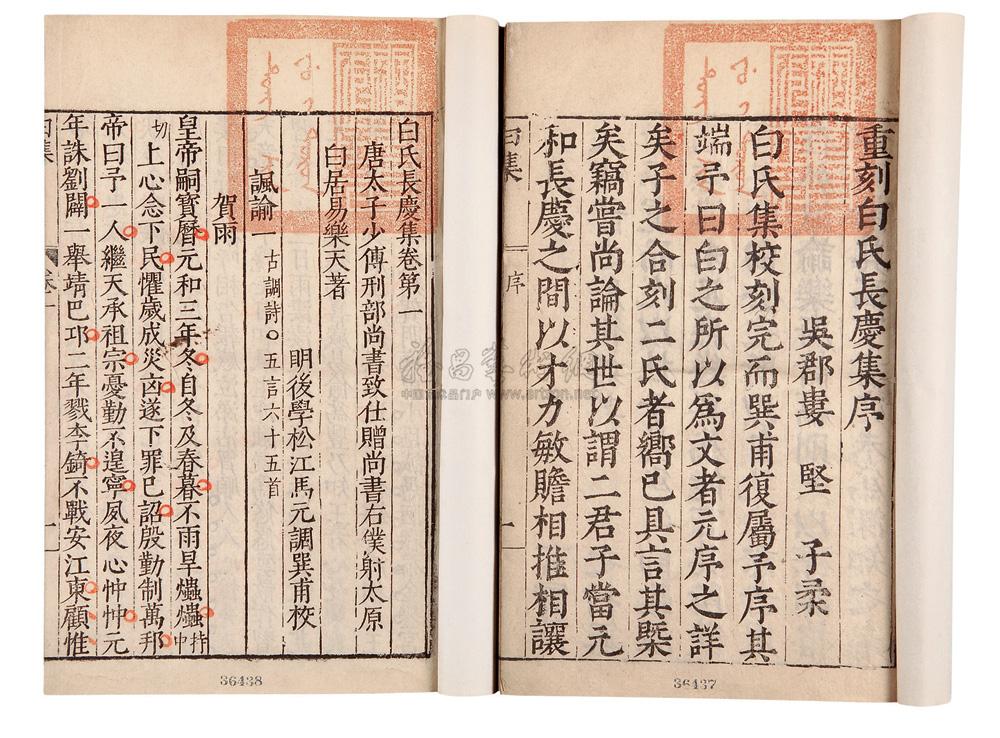 重刻白氏長慶集序
吳郡婁 堅 子柔
白氏集校刻完而巽甫復屬予序其
端予曰白之所以爲文者元序之詳
矣子之合刻二氏者嚮已具言其槩
矣竊嘗尚論其世以謂二君子當元
和長慶之間以才力敏贍相推相讓
白集 序 一
36437
白氏長慶集卷第一
唐太子少傅刑部尚書致仕贈尚書右僕射太原
白居易樂天著
明後學松江馬元調巽甫校
諷諭一 古調詩○五言六十五首
賀雨
皇帝嗣寶曆元和三年冬自冬及春暮不雨旱爞爞持中
切上心念下民懼歲成災凶遂下罪已詔殷勤制萬邦
帝曰予一人繼天承祖宗憂勤不遑寧夙夜心忡忡元
年誅劉闢一舉靖巴邛二年戮李錡不戰安江東顧惟
白集 卷一 一
36438